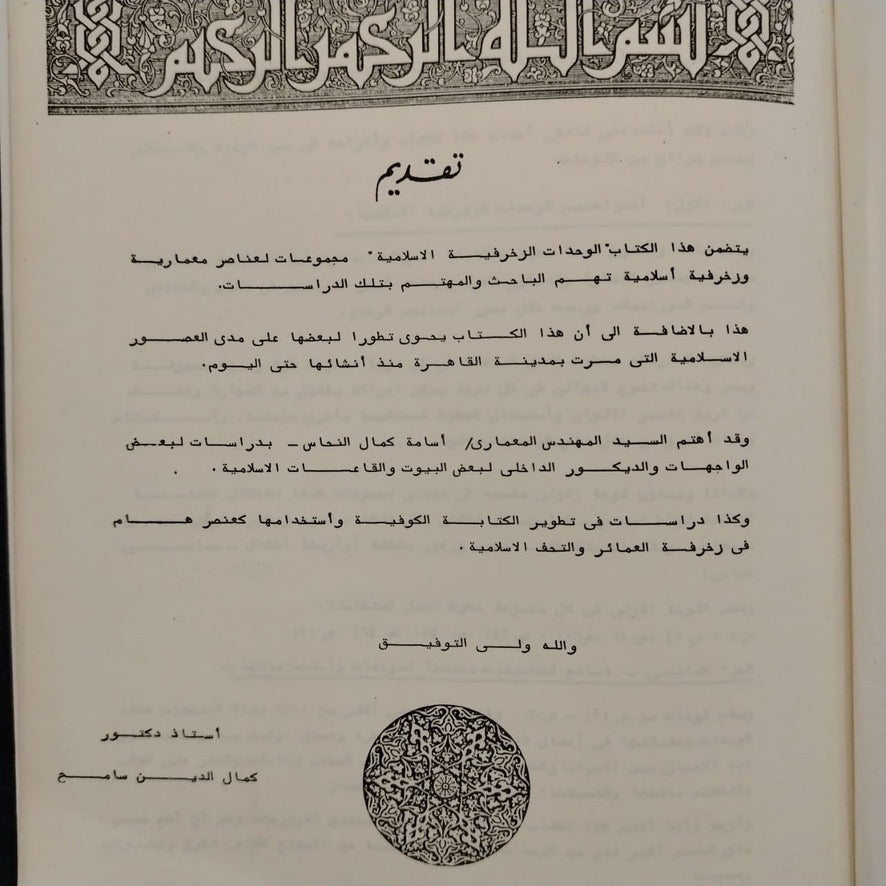 بسم الله الرحمن الرحيم
تقديم
يتضمن هذا الكتاب "الوحدات الزخرفية الاسلامية" مجموعات لعناصر معمارية
وزخرفية أسلامية تهم الباحث والمهتم بتلك الدراسات.
هذا بالاضافة الى أن هذا الكتاب يحوى تطورا لبعضها على مدى العصور
الاسلامية التى مرت بمدينة القاهرة منذ أنشائها حتى اليوم.
وقد أهتم السيد المهندس المعمارى/ أسامة كمال النحاس - بدراسات لبعض
الواجهات والديكور الداخلى لبعض البيوت والقاعات الاسلامية.
وكذا دراسات فى تطوير الكتابة الكوفية وأستخدامها كعنصر هام
فى زخرفة العمائر والتحف الاسلامية.
والله ولى التوفيق
أستاذ دكتور
كمال الدين سامح